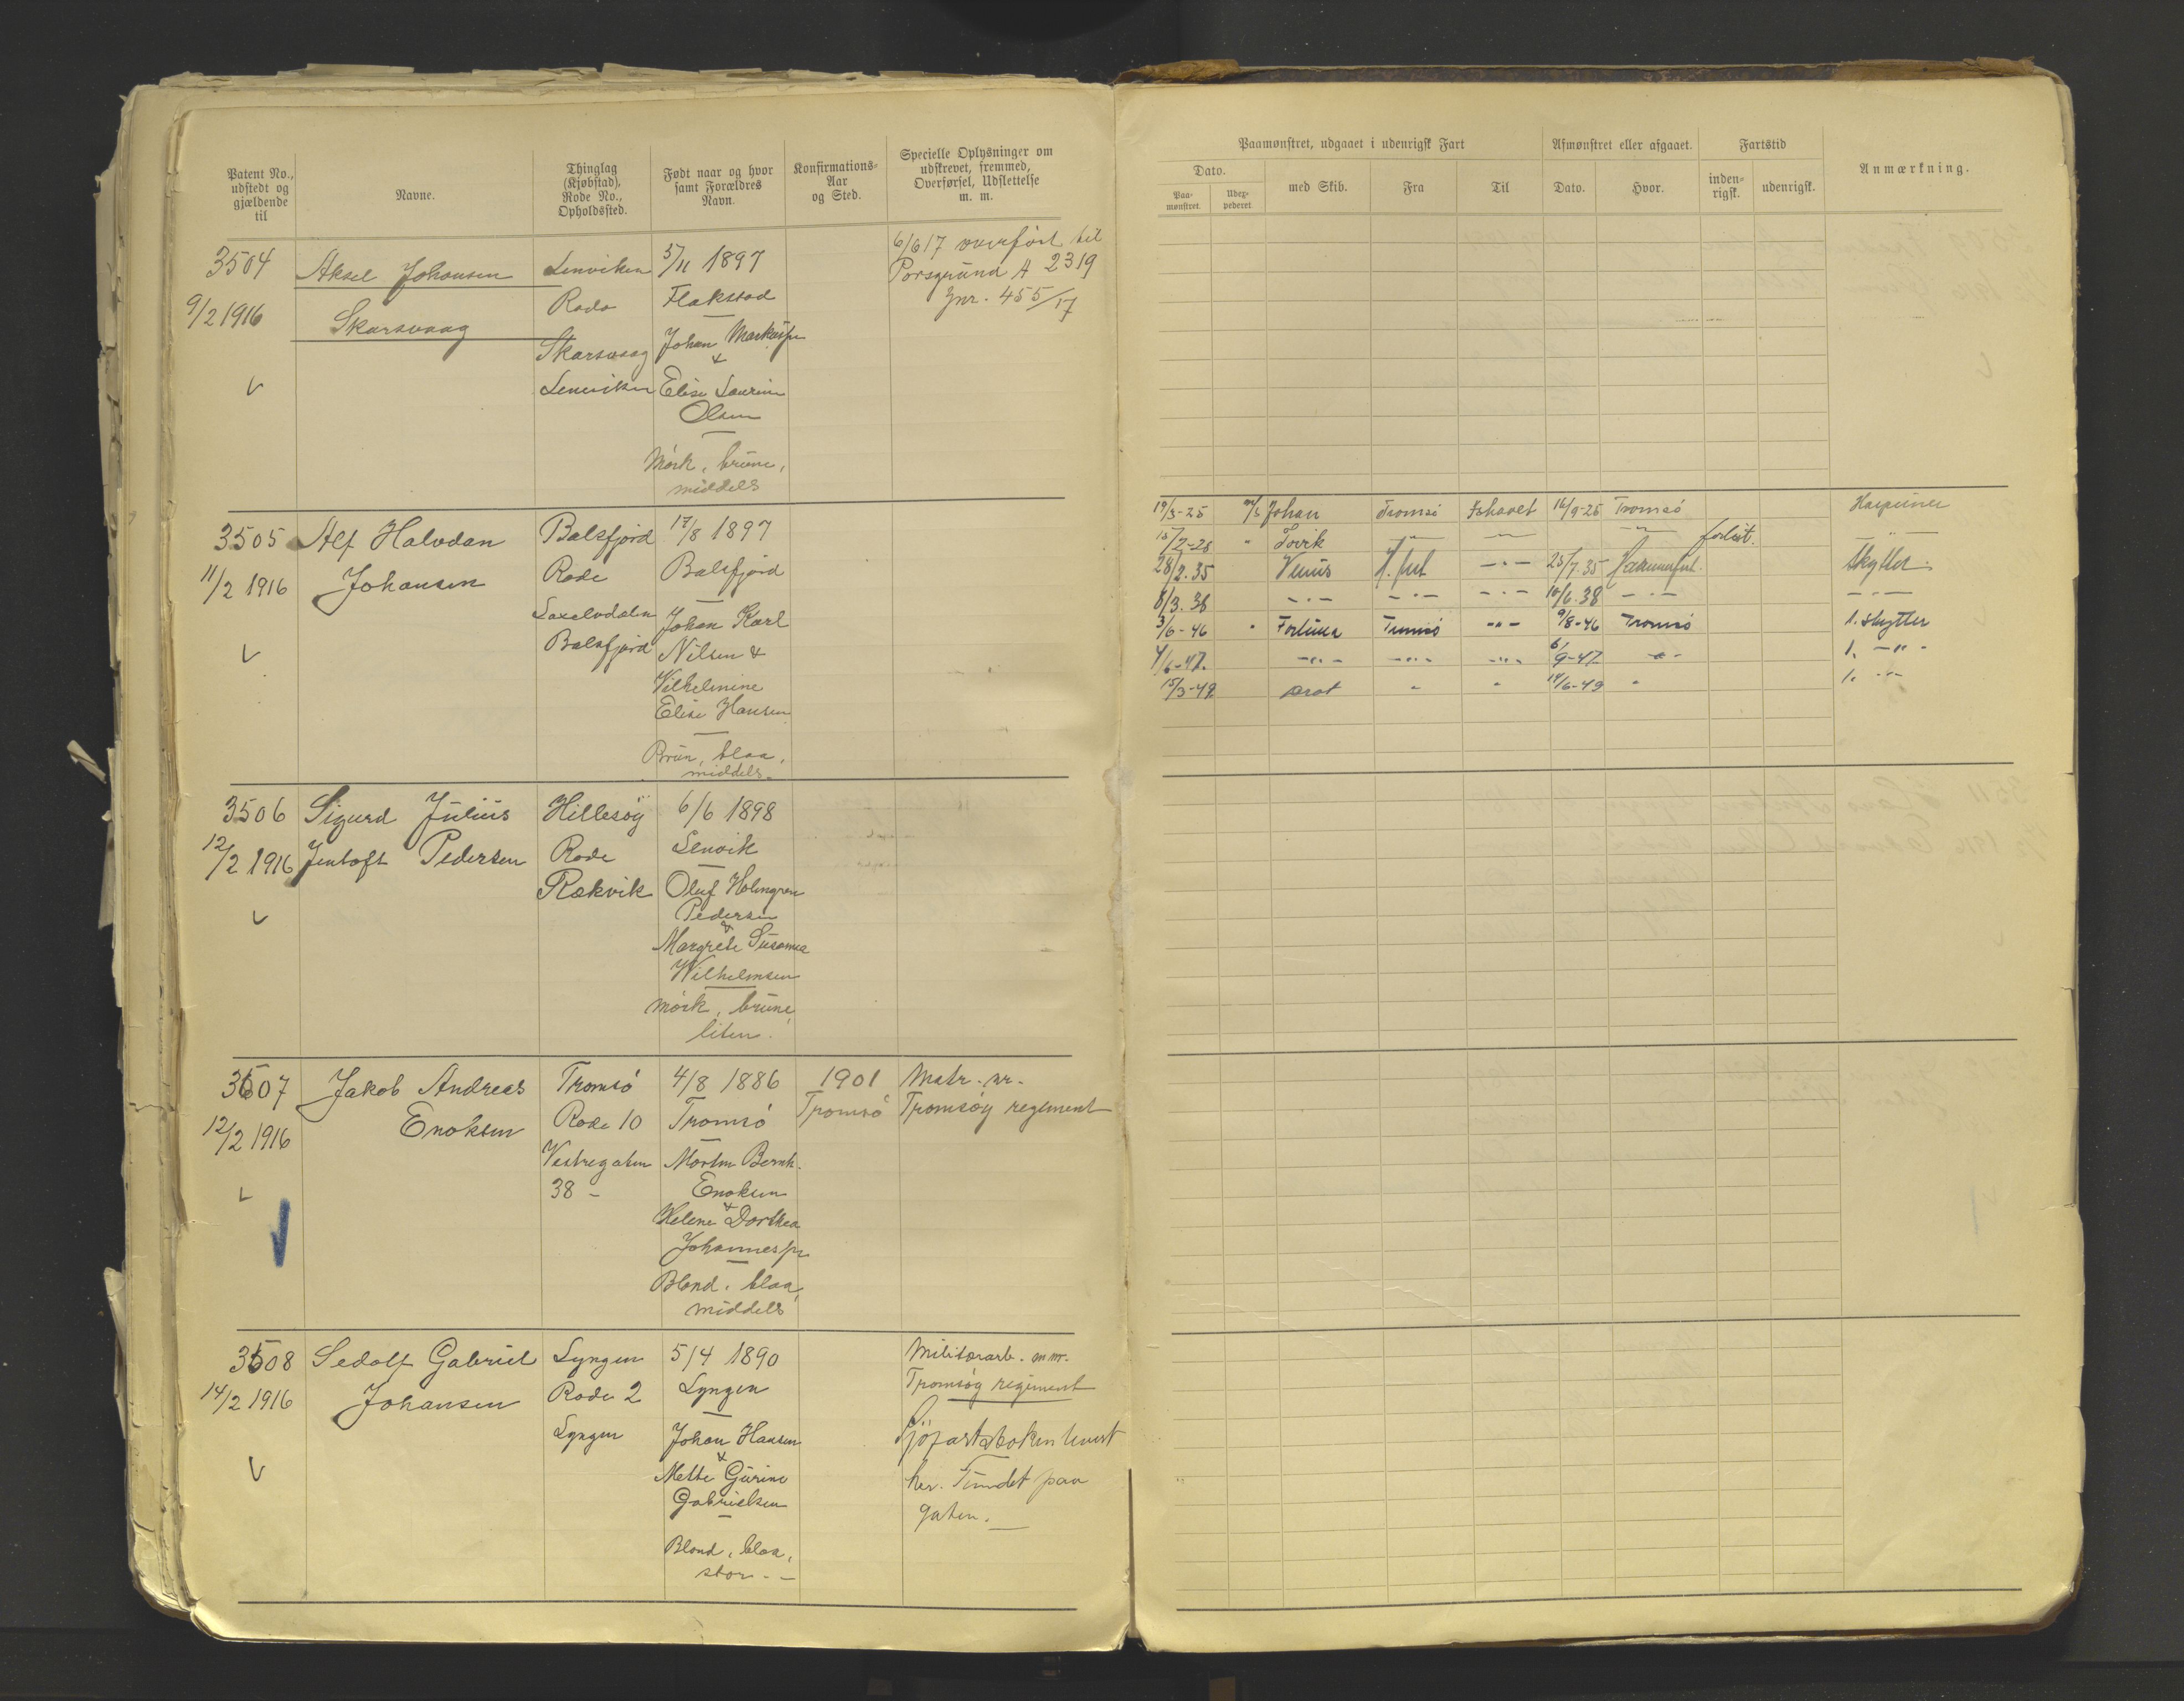 Patent No., udstedt og gjældende til
Navne.
Thinglag (Kjøbstad), Rode No., Opholdssted.
Født naar og hvor samt Forældres Navn.
Konfirmations-Aar og Sted.
Specielle Oplysninger om udskrevet, fremmed, Overførsel, Udslettelse m. m.
3504
9/2 1916
Aksel Johansen
Skarsvaag
Lenviken
Rode
Skarsvaag
Lenviken
5/11 1897
Flakstad
Johan Markusen
&
Elise Laurine
Olsen
Mørk, brune,
middels
6/6 17 overført til
Porsgrund A 2319
Jnr. 455/17
3505
11/2 1916
Alf Halvdan
Johansen
Balsfjord
Rode
Laxelvdalen
Balsfjord
17/8 1897
Balsfjord
Johan Karl
Nilsen &
Vilhelmine
Elise Hansen
Brun, blaa,
middels
3506
12/2 1916
Sigurd Julius
Jentoft Pedersen
Hillesøy
Rode
Rækvik
6/6 1898
Lenvik
Oluf Holmgren
Pedersen
&
Margrete Susanna
Wilhelmsen
mørk, brune,
liten.
3507
12/2 1916
Jakob Andreas
Enoksen
Tromsø
Rode 10
Vestregaten
38 -
4/8 1886
Tromsø
Morten Bernh.
Enoksen
&
Helene Dorthea
Johannesen
Blond, blaa,
middels
1901
Tromsø
Matr. nr.
Tromsøy regiment
3508
14/2 1916
Sedolf Gabriel
Johansen
Lyngen
Rode 2
Lyngen
5/4 1890
Lyngen
Johan Hansen
&
Mette Gurine
Gabrielsen
Blond, blaa,
stor. -
Militærarb. m nr.
Tromsøy regiment
Sjøfartsboken levert
her. Fundet paa
gaten.
Paamønstret, udgaaet i udenrigsk Fart
Afmønstret eller afgaaet.
Fartstid
Anmærkning.
Dato.
Paa-mønstret.
Udex-pederet
med Skib.
Fra
Til
Dato.
Hvor.
inden-rigsk.
udenrigsk.
19/3-25 m/s Johan Tromsø Ishavet 16/9-25 Tromsø Harpuner
15/2-28 " -"- -"- -"- forlist. -"-
28/2.35 Venus H.fest -"- 25/7.35 Hammerfest. Skytter.
8/3.38 -"- -"- -"- 10/6.38 -"- -"-
3/6-46 " Fortuna Tromsø -"- 9/8-46 Tromsø 1. skytter
4/6-47. -"- -"- -"- 6/9-47 -"- 1. -"-
15/3-49 Arat " " 14/6-49 " 1. -"-